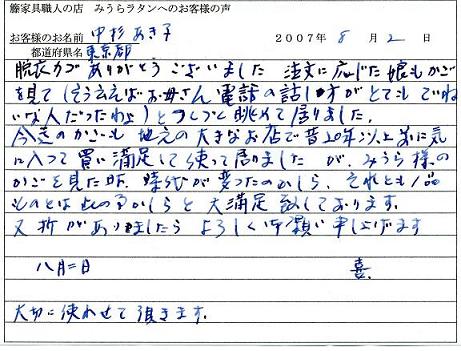 籐家具職人の店 みうらラタンへのお客様の声
お客様のお名前 中杉 あき子 2007年 8月 2日
都道府県名 東京都
脱衣カゴ ありがとうございました 注文に応じた娘もかご
を見て(そう言えばお母さん 電話の話し方が とても ていね
いな人だったわよ)と つくづく眺めて居りました。
今迄のかごも 地元の大きなお店で昔20年以上前に気
に入って買い満足して使って居りましたが、みうら様の
かごを見た時、時代が変ったのかしら、それとも1品
ものとは此のるかしらと大満足致しております。
又折がありましたら よろしくお願い申し上げます
八月二日 喜
大切に使わせて頂きます。